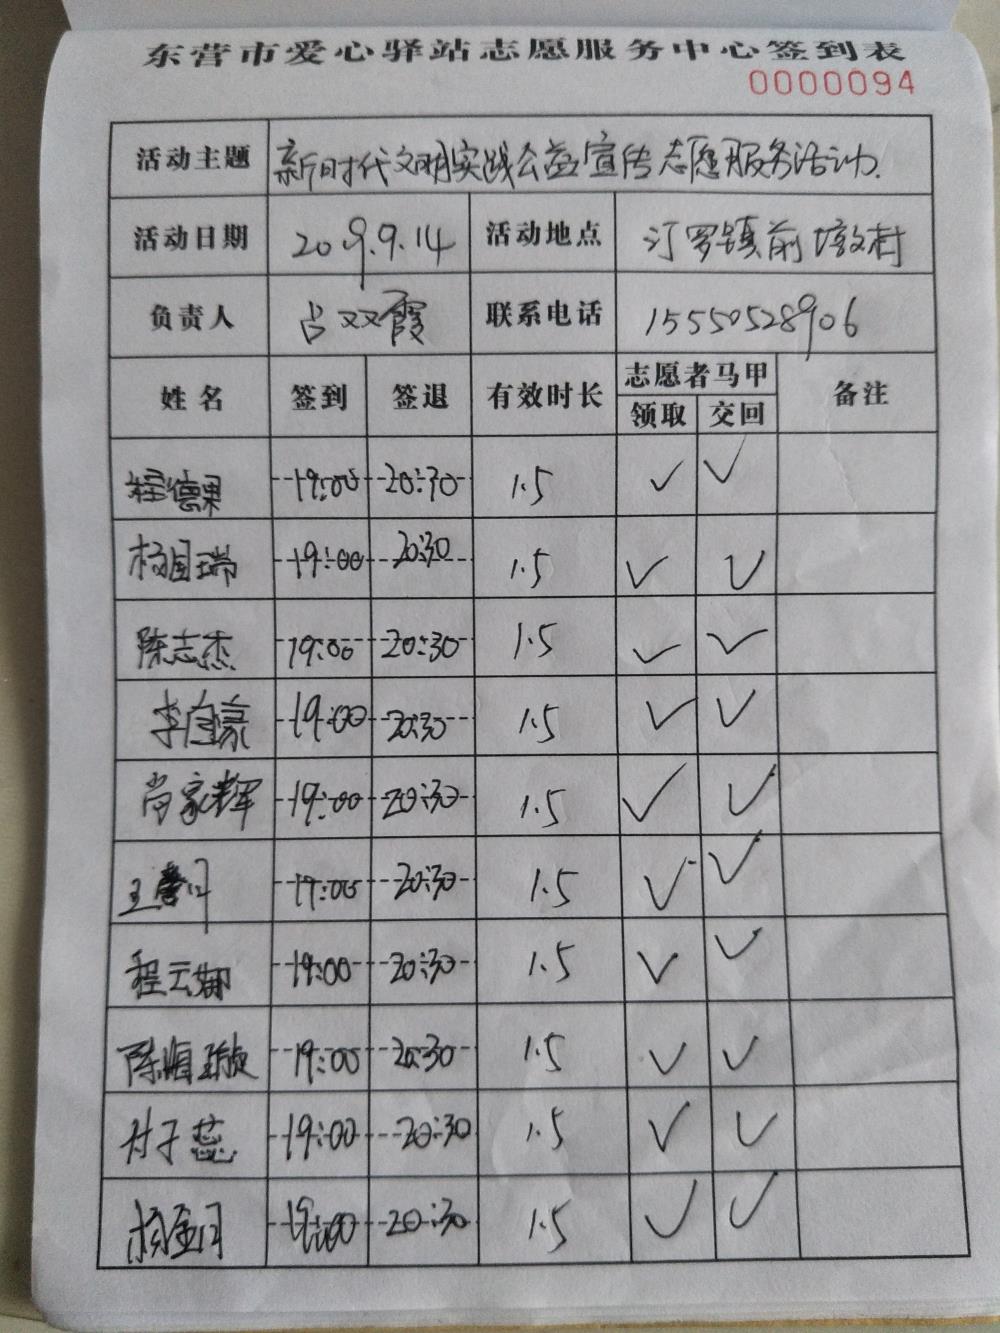 东营市爱心驿站志愿服务中心签到表
0000094
活动主题 新时代文明实践公益宣传志愿服务活动.
活动日期 2019.9.14 活动地点 汀罗镇前墩村
负责人 占双霞 联系电话 15550528906
姓名 签到 签退 有效时长 志愿者马甲 备注
领取 交回
程德果 19:00 20:30 1.5 ✓ ✓
杨国瑞 19:00 20:30 1.5 ✓ ✓
陈志杰 19:00 20:30 1.5 ✓ ✓
李自豪 19:00 20:30 1.5 ✓ ✓
肖家辉 19:00 20:30 1.5 ✓ ✓
王 19:00 20:30 1.5 ✓ ✓
程云娜 19:00 20:30 1.5 ✓ ✓
陈 19:00 20:30 1.5 ✓ ✓
付子蕊 19:00 20:30 1.5 ✓ ✓
杨金月 19:00 20:30 1.5 ✓ ✓